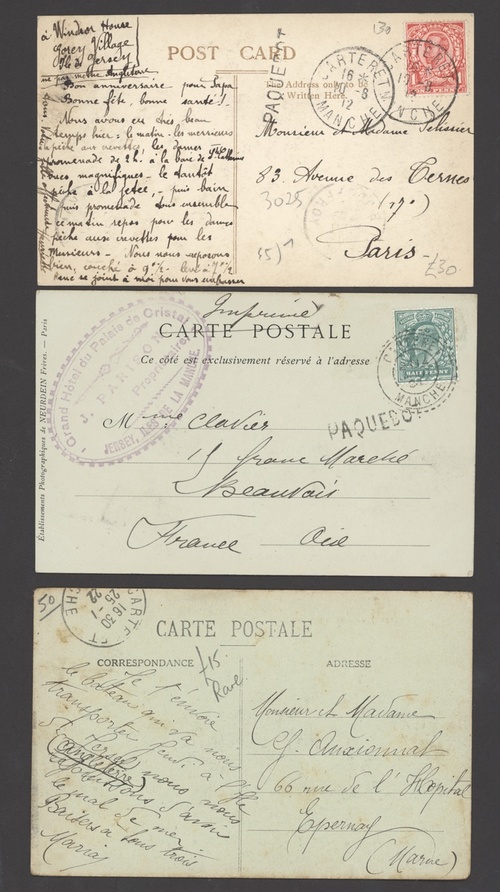 à Windsor House
Gorey Village
Ile de Jersey
Angleterre
POST CARD
PAQUEBOT
Address only to be
Written Here.
CARTERET
16
8
12
MANCHE
Bon anniversaire pour Papa
Bonne fête, bonne santé !
Nous avons eu très beau
temps hier : le matin les messieurs
pêche aux crevettes, les dames
promenade de 2h. à la baie de Ste Catherine
magnifiques le tantôt
pêche à la jetée, puis bain
puis promenade tous ensemble
ce matin repos pour les dames
pêche aux crevettes pour les
Messieurs - Nous nous reposons
bien, couché à 9h ½ levé à 7h ½
se joint à moi pour vous embrasser
Monsieur et Madame
83. Avenue des Ternes
(17e)
Paris -
3025
£30
Imprimé
CARTE POSTALE
Ce côté est exclusivement réservé à l'adresse
Grand Hôtel du Palais de Cristal
J. PARISON
Propriétaire
JERSEY, ILES DE LA MANCHE
HALF PENNY
CARTERET
MANCHE
PAQUEBOT
Etablissements Photographiques de NEURDEIN Frères. — Paris
Mme Clavier
15 Grane Marché
Beauvais
France Oise
50
CARTERET
16 30
25-1
22
MANCHE
CARTE POSTALE
CORRESPONDANCE
ADRESSE
£15
Rare
Je t'envoie
le bateau qui va nous
transporter jeudi à l'île
de Jersey
(Angleterre) nous nous
d'avoir
le mal de mer.
Baisers à tous trois
Maria
Monsieur et Madame
G. Auxionnat
66 rue de l'Hopital
Epernay
(Marne)